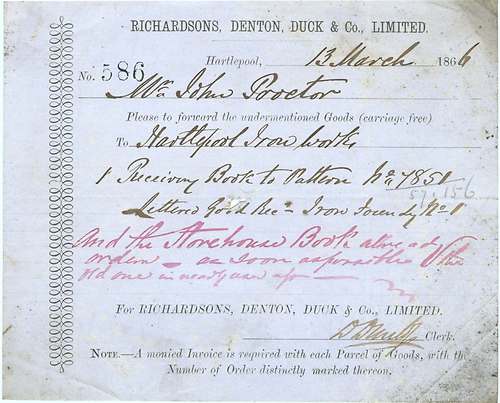 RICHARDSONS, DENTON, DUCK & Co., LIMITED.
Hartlepool, 13 March 1866
No. 586
Mr. John Proctor
Please to forward the undermentioned Goods (carriage free)
To Hartlepool Iron Works
1 Receiving Book to Pattern No. 7851
Lettered Goods Rec Iron Foundry No 1
And the Storehouse Book already
order as soon as possible the
old one is nearly used up
For RICHARDSONS, DENTON, DUCK & Co., LIMITED.
Clerk.
NOTE.—A monied Invoice is required with each Parcel of Goods, with the
Number of Order distinctly marked thereon.